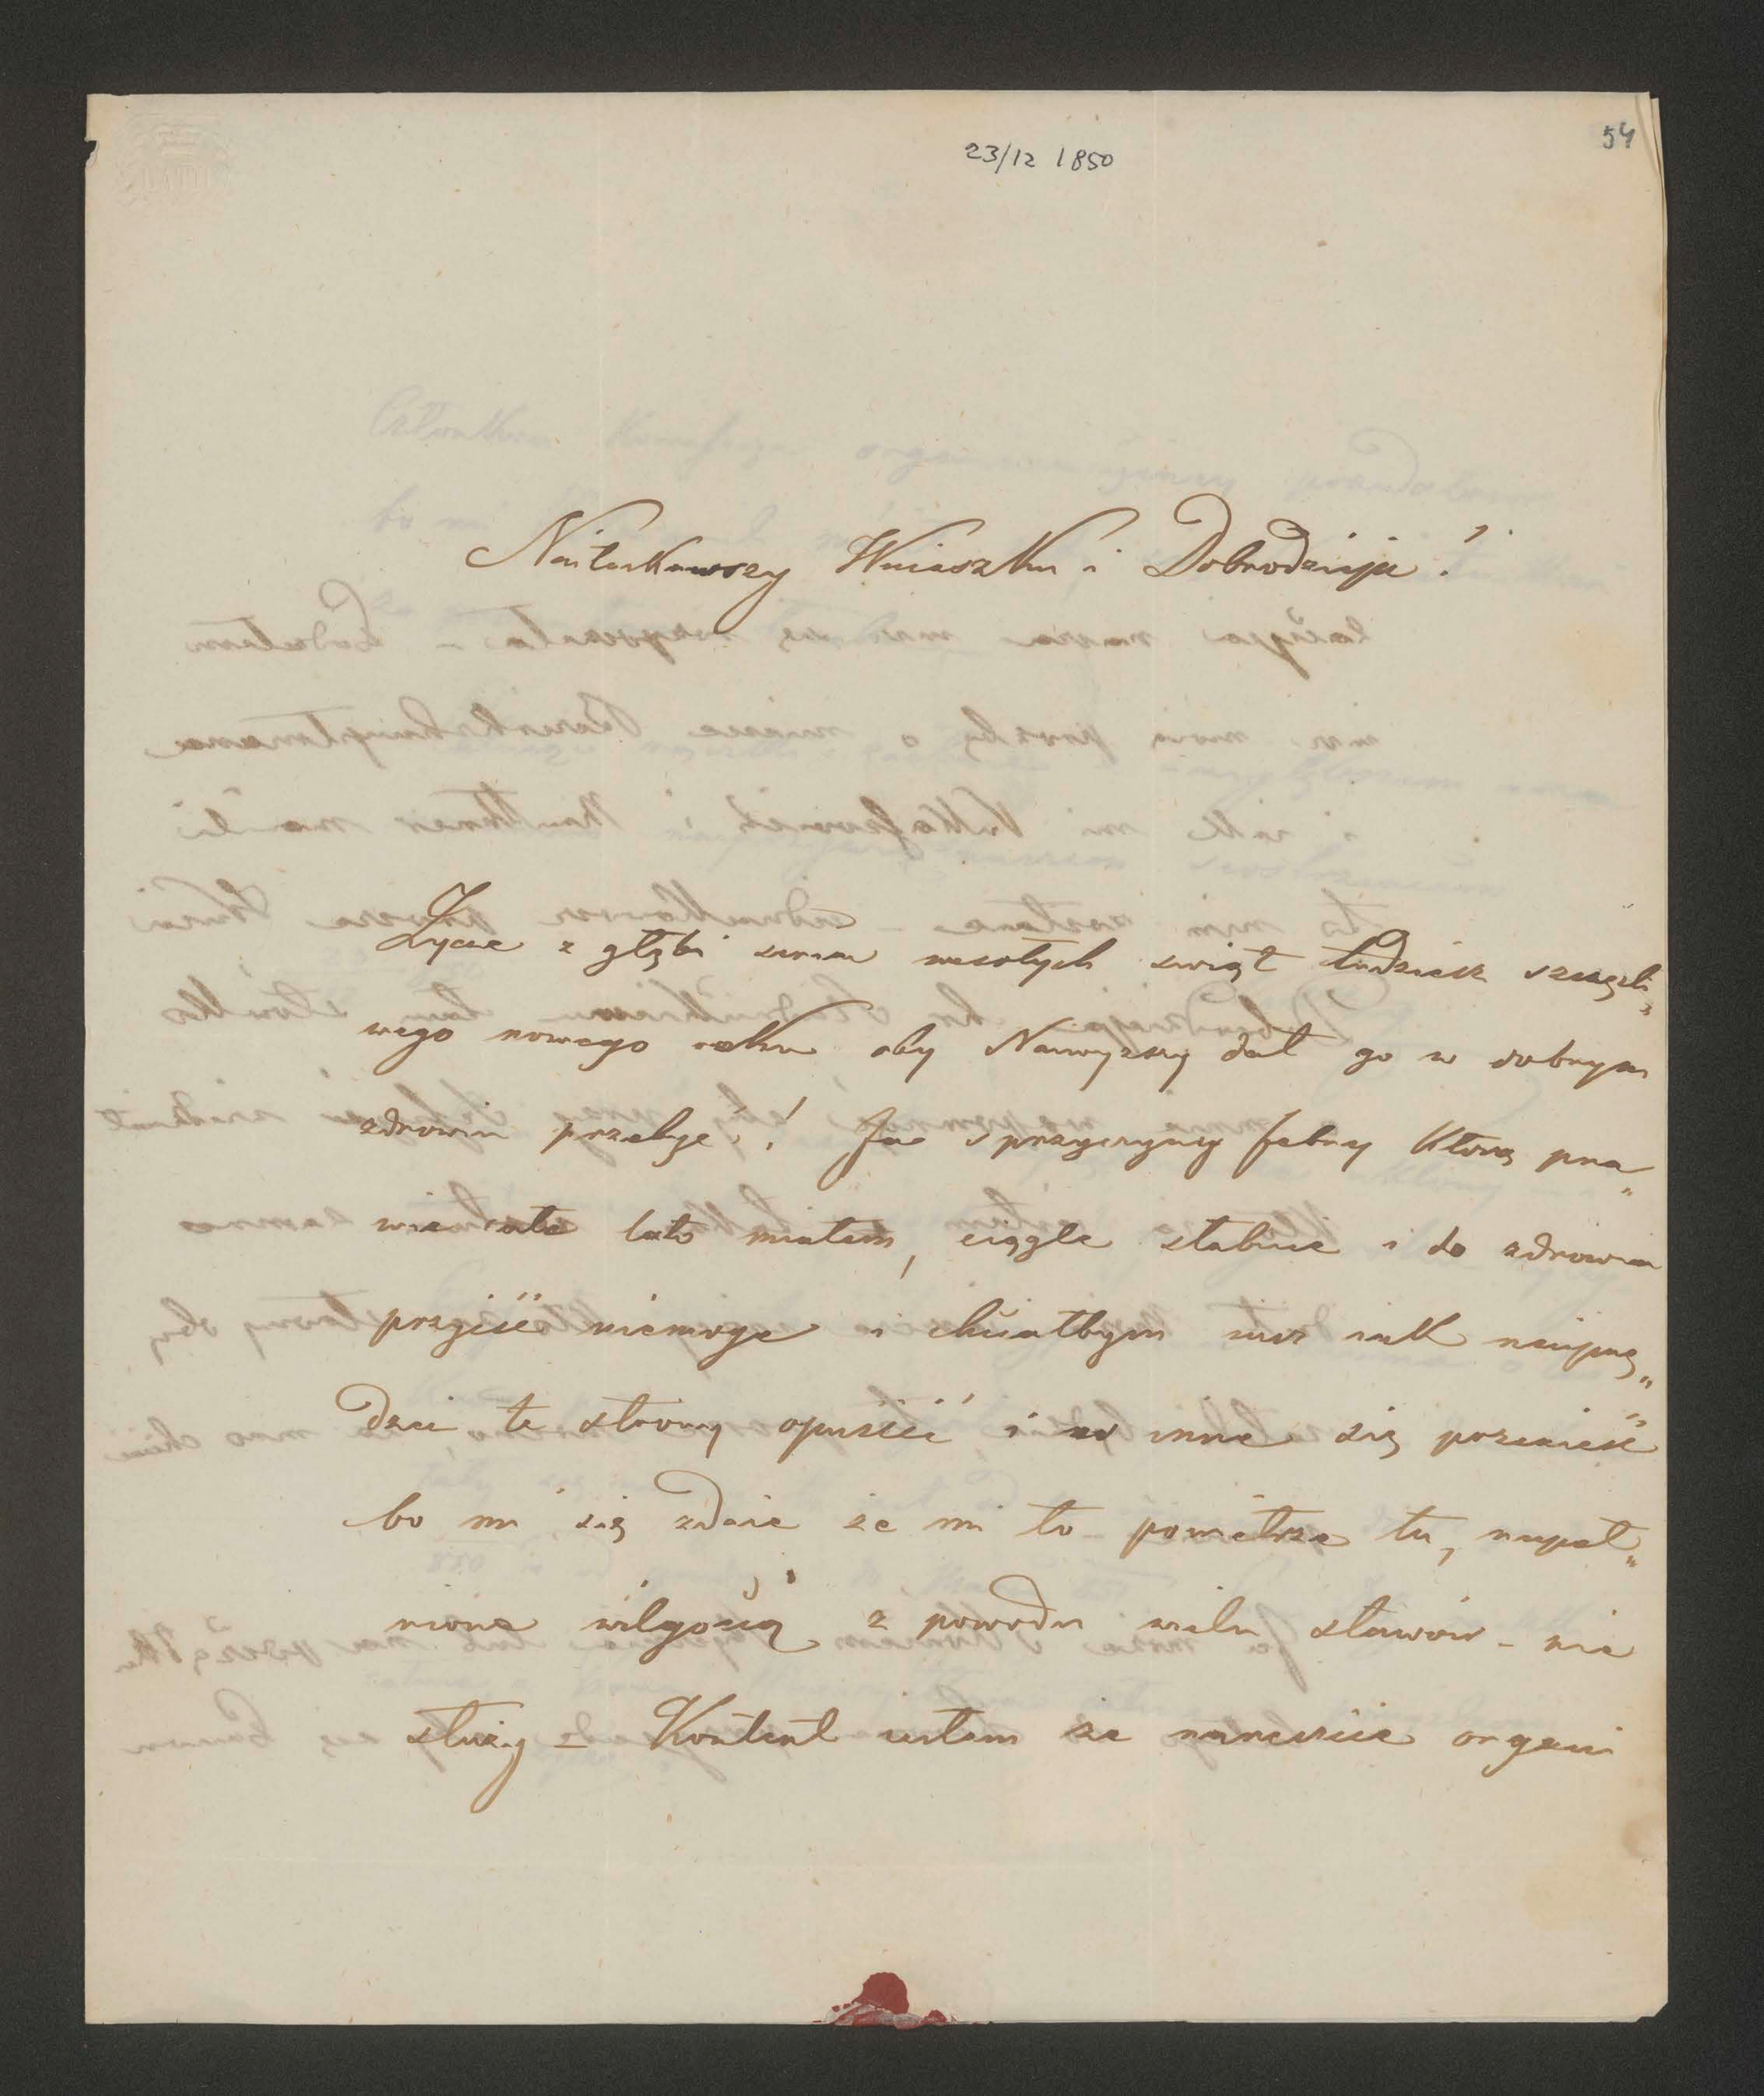 54
23/12 1850
Naiłaskawszy Wuiaszku i Dobrodzieju!
Życze z głębi serca wesołych swiąt tudziesz szczęśli„
wego nowego roku oby Naiwyzszy dał go w dobrym
zdrowiu przebyc! Ja s przyczyny febry którą pra„
wie całe lato miałem, ciągle słabuie i do zdrowia
przyiść niemoge i chciałbym iusz iak naiprę„
dzei te strony opuścić i w inne się przenieść
bo mi się zdaie że mi to powietrze tu, napeł„
nione wilgocią z powodu wielu stawów – nie
służy – Kontent iestem że nareszcie organi